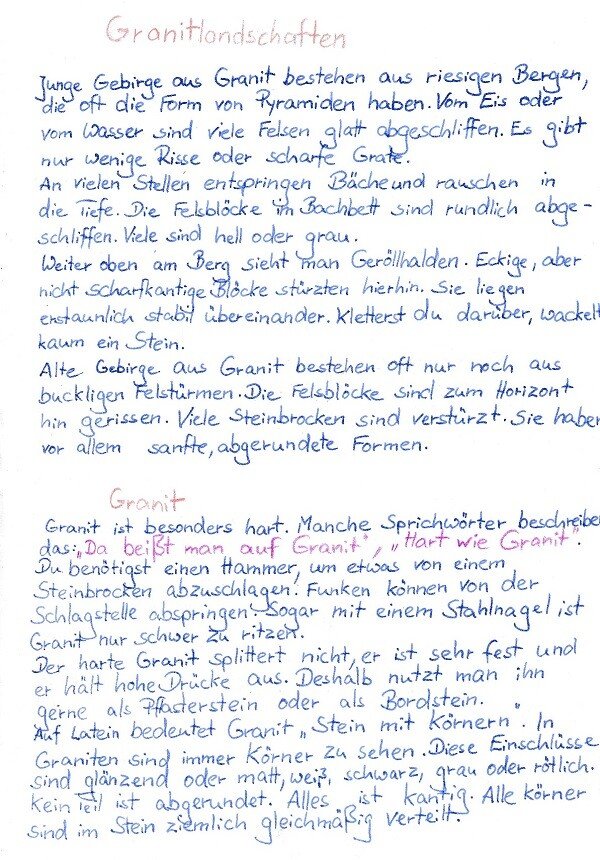 Granitlandschaften
Junge Gebirge aus Granit bestehen aus riesigen Bergen,
die oft die Form von Pyramiden haben. Vom Eis oder
vom Wasser sind viele Felsen glatt abgeschliffen. Es gibt
nur wenige Risse oder scharfe Grate.
An vielen Stellen entspringen Bäche und rauschen in
die Tiefe. Die Felsblöcke im Bachbett sind rundlich abge-
schliffen. Viele sind hell oder grau.
Weiter oben am Berg sieht man Geröllhalden. Eckige, aber
nicht scharfkantige Blöcke stürzten hierhin. Sie liegen
erstaunlich stabil übereinander. Kletterst du darüber, wackelt
kaum ein Stein.
Alte Gebirge aus Granit bestehen oft nur noch aus
buckligen Felstürmen. Die Felsblöcke sind zum Horizont
hin gerissen. Viele Steinbrocken sind verstürzt. Sie haben
vor allem sanfte, abgerundete Formen.
Granit
Granit ist besonders hart. Manche Sprichwörter beschreiben
das: „Da beißt man auf Granit", „Hart wie Granit".
Du benötigst einen Hammer, um etwas von einem
Steinbrocken abzuschlagen. Funken können von der
Schlagstelle abspringen. Sogar mit einem Stahlnagel ist
Granit nur schwer zu ritzen.
Der harte Granit splittert nicht, er ist sehr fest und
er hält hohe Drücke aus. Deshalb nutzt man ihn
gerne als Pflasterstein oder als Bordstein.
Auf Latein bedeutet Granit „Stein mit Körnern". In
Graniten sind immer Körner zu sehen. Diese Einschlüsse
sind glänzend oder matt, weiß, schwarz, grau oder rötlich.
Kein Teil ist abgerundet. Alles ist kantig. Alle Körner
sind im Stein ziemlich gleichmäßig verteilt.